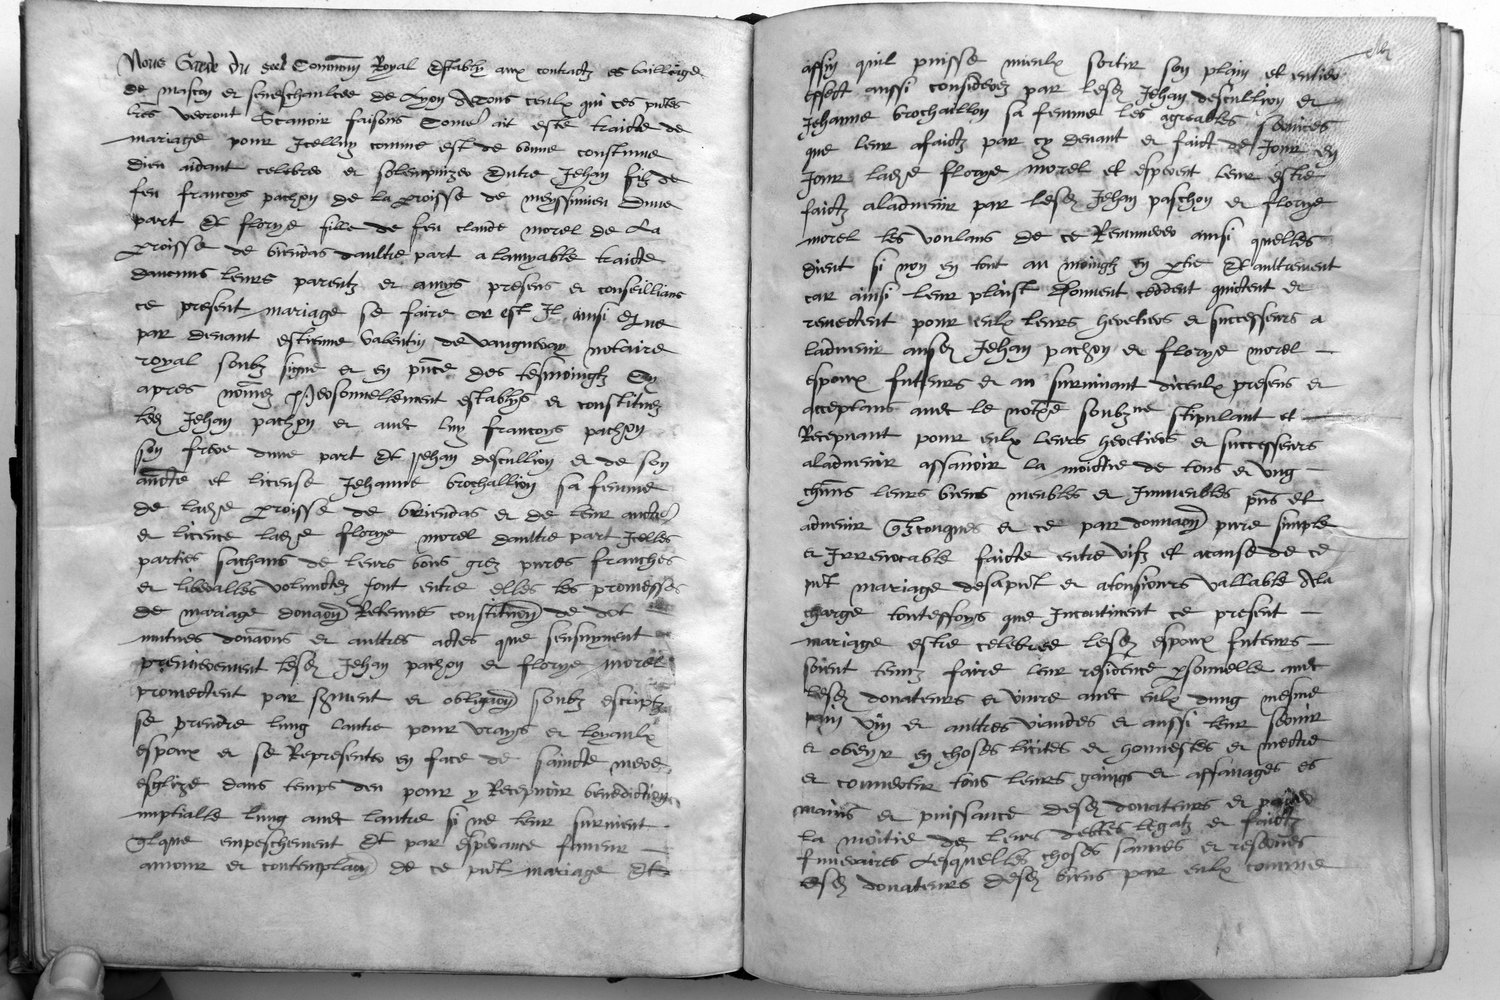 Nous Garde du seel Commun Royal Estably aux contractz es bailliage
de mascon et seneschaulcee de Lyon A tous ceulx qui ces pntes
lres verront Scavoir faisons Come ait este traicte de
mariage pour Icelluy comme est de bonne coustume
dieu aidant celebrer et solempnizer Entre Jehan filz de
feu francoys pachon de la proisse de meyssimieu dune
part Et florye fille de feu claude morel de La
proisse de briendas daultre part a lamyable traicte
daucuns leurs parentz et amys presens et conseillans
ce present mariage se faire Or est Il ainsi Que
par devant estienne valentin de vaugneray notaire
royal soubz signe et en pnce des tesmoingtz Cy
apres nomez personnellement establys et constituez
led Jehan pachon et avec luy francoys pachon
son frere dune part Et Jehan descullion et de son
aucte et license Jehanne brochallion sa femme
de ladte proisse de briendas et de leur aucte
et licence ladte florye morel daultre part Icelles
parties sachans de leurs bons grez pures franches
et liberalles voluntez font entre elles les promesses
de mariage donaon Retenues constitution de dot
mutues donaons et aultres actes que sensuyvent
premierement lesd Jehan pachon et florye morel
promectent par serment et obligaon soubz escriptz
se prendre lung lautre pour vrays et loyaulx
espoux et se Representer en face de saincte mere
esglize dans temps deu pour y Recepvoir benediction
nuptialle lung avec lautre si ne leur survient
Qlque empeschement Et par esperance faveur
amour et contemplaon de ce pnt mariage Et
affin quil puisse mieulx sortir son plain et entier
effect aussi considerez par lesd Jehan descullion et
Jehanne brochaillon sa femme les agreables services
que leur a faictz par cy devant et faict de Jour en
Jour ladte florye morel et esperent leur estre
faictz aladvenir par lesd Jehan paschon et florye
morel les voulans de ce Remunerer ainsi quelles
dient si non en tout au moingtz en ptie Et aultrement
car ainsi leur plaist Donnent ceddent quictent et
remectent pour eulx leurs heretiers et successeurs a
ladvenir ausd Jehan pachon et florye morel
espoux futeurs et au survivant diceulx presens et
acceptans avec le notre soubzne stipulant et
Recepvant pour eulx leurs heretiers et successeurs
aladvenir assavoir la moictie de tous et ung
chuns leurs biens meubles et Immeubles pns et
advenir Qzconques et ce par donnaon pure simple
et Irrevocable faicte entre vifz et acause de ce
pnt mariage desapnt et atousiours vallable Ala
charge toutesfoys que Incontinent ce present
mariage estre celebree lesd espoux futeurs
soient tenuz faire leur residence psonnelle avec
lesd donateurs et vivre avec eulx dung mesme
pain vin et aultres viandes et aussi leur servir
et obeyr en choses licites et honnestes et mectre
et convertir tous leurs gaings et affanages es
mains et puissance desd donateurs et payer
la moitie de leurs debtes legatz et faictz
funeraires Lesquelles choses saulves et reservees
Lesd donateurs desd biens par eulx comme